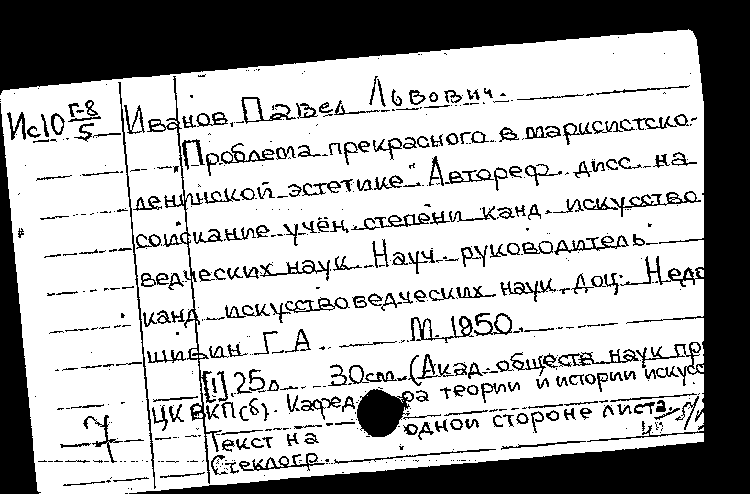 Ис10 Г-8/5
Иванов, Павел Львович.
"Проблема прекрасного в марксистско-
ленинской эстетике". Автореф. дисс. на
соискание учён. степени канд. искусство-
ведческих наук. Науч. руководитель
канд. искусствоведческих наук, доц. Недо
шивин Г. А. М, 1950.
[1], 25л. 30см. (Акад. обществ. наук при
ЦК ВКП(б). Кафед ра теории и истории искусс
Текст на одной стороне листа.
Стеклогр.